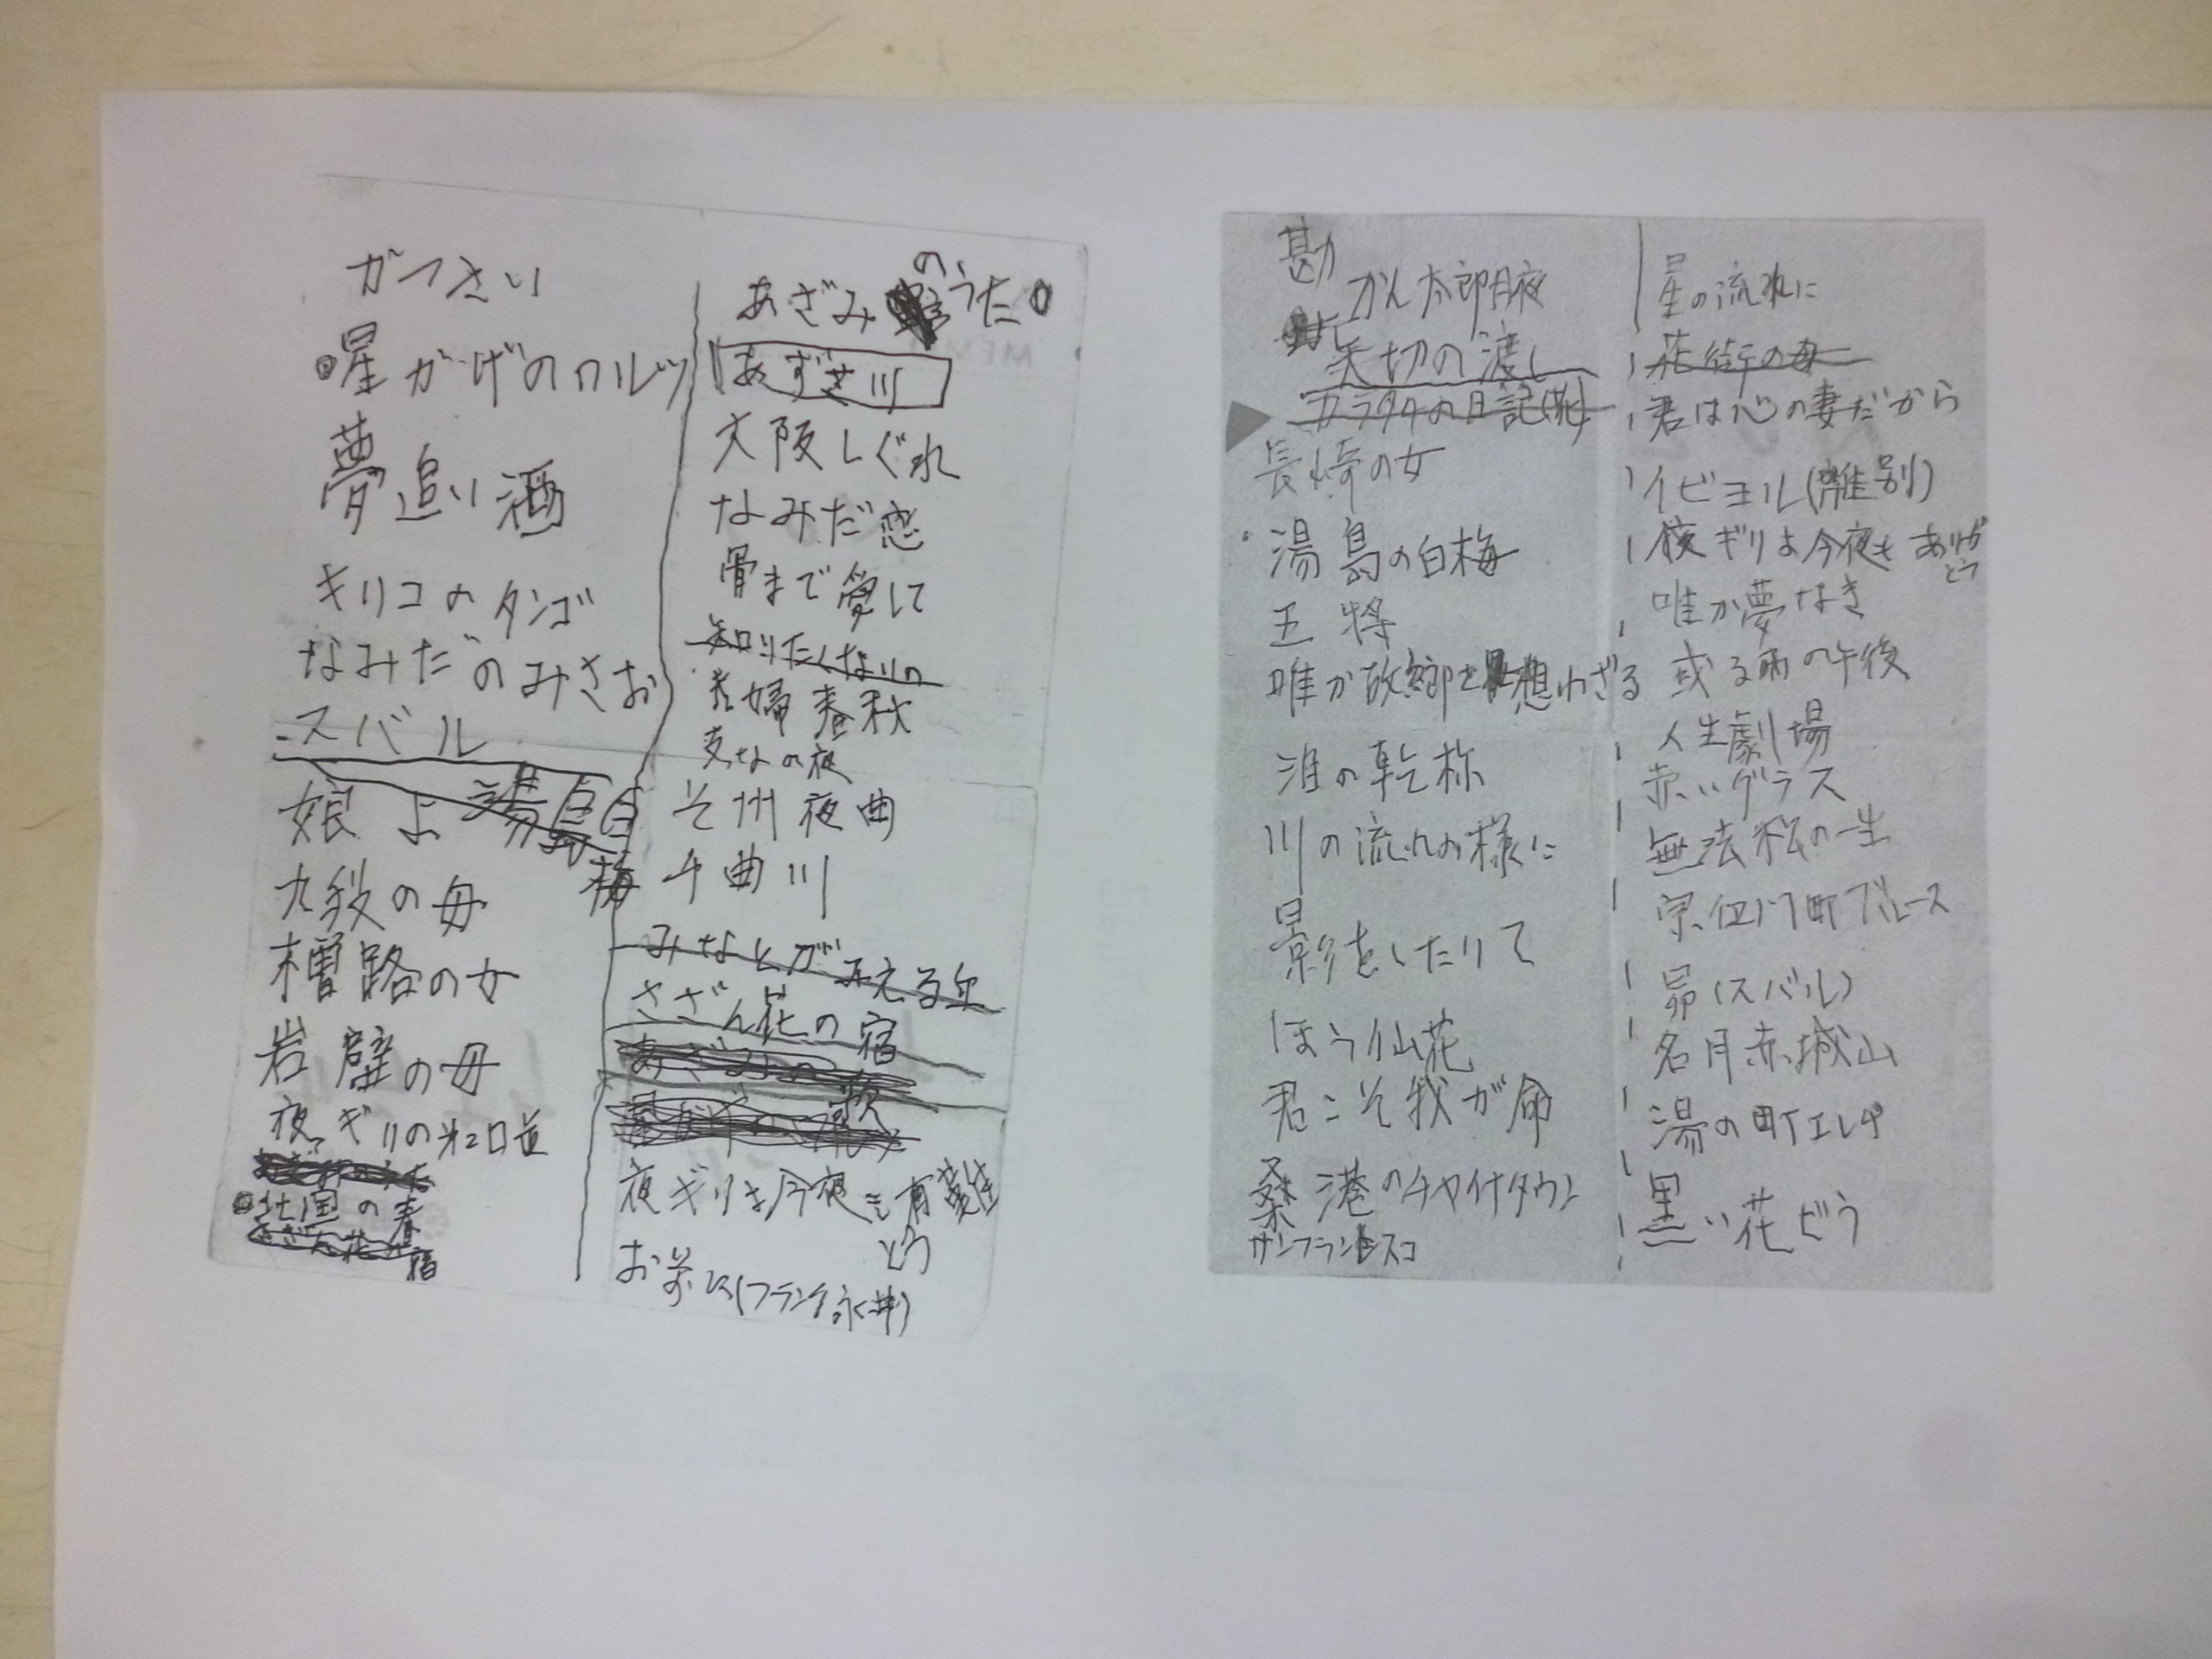 がつさい
星かげのワルツ
夢追い酒
キリコのタンゴ
なみだのみさお
スバル
娘よ 湯島白
梅
九段の母
岩壁の母
夜ギリの
北国の春
さざん花の宿
あざみのうた
あずさ川
大阪しぐれ
なみだ恋
骨まで愛して
知りたくないの
夫婦春秋
支なの夜
そ州夜曲
千曲川
みなとが みえる丘
さざん花の宿
あざみの歌
夜ギリよ今夜も有難
とう
(フランク永井)
勘
かん太郎月夜
矢切の渡し
カラタチの日記
長崎の女
湯島の白梅
王将
唯か故郷を想わざる
川の流れの様に
影をしたいて
ほう仙花
君こそ我が命
桑港のチャイナタウン
サンフランシスコ
星の流れに
花街の母
君は心の妻だから
イビヨル(離別)
夜ギリよ今夜も ありが
とう
唯か夢なき
或る雨の午後
人生劇場
赤いグラス
無法松の一生
昴(スバル)
名月赤城山
湯の町エレジ
黒い花びら